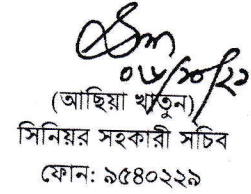 ০৬/১০/২২
(আছিয়া খাতুন)
সিনিয়র সহকারী সচিব
ফোন: ৯৫৪০২২৯